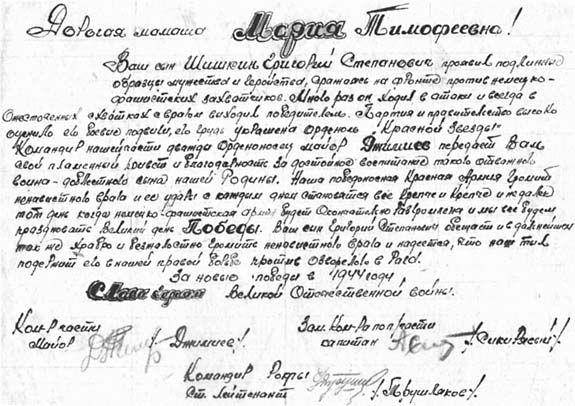 Дорогая мамаша Мария Тимофеевна!
Ваш сын Шишкин Григорий Степанович проявил подлинные
образцы мужества и геройства, сражаясь на фронте против немецко-
фашистских захватчиков. Много раз он ходил в атаки и всегда в
ожесточенных схватках с врагом выходил победителем. Партия и правительство высоко
оценило его боевые подвиги, его грудь украшена Орденом "Красной Звезды"
Командир нашей части дважды Орденоносец майор Джилиев передает Вам
свой пламенный привет и благодарность за достойное воспитание такого отважного
воина-доблестного сына нашей Родины. Наша победоносная Красная Армия громит
ненавистного врага и ее удары с каждым днем становятся все крепче и крепче и недалек
тот день когда немецко-фашистская армия будет окончательно разгромлена и мы все будем
праздновать Великий день Победы. Ваш сын Григорий Степанович обещает и в дальнейшем
так же храбро и безжалостно громить ненавистного врага и надеется, что наш тыл
подержит его в нашей правой борьбе против озверелого врага!
За новые победы в 1944 году
Слава героям Великой Отечественной войны.
Ком-р части Зам. Ком-ра по п/части
Майор /Джилиев/ капитан
Командир Роты
Ст. Лейтенант